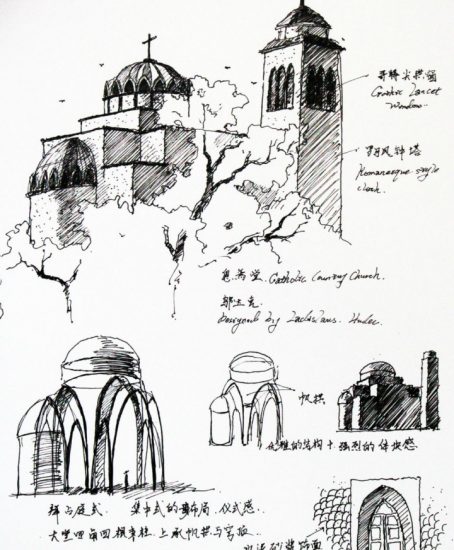 哥特尖拱窗
Gothic Lancet
Window.
罗马风钟塔
Romanesque style
息焉堂. Catholic Country Church.
邬达克.
Designed by Hudec.
帆拱
的结构+强烈的体块感.
拜占庭式. 集中式的布局. 仪式感.
大堂四角四根束柱. 上承帆拱与穹顶
饰面